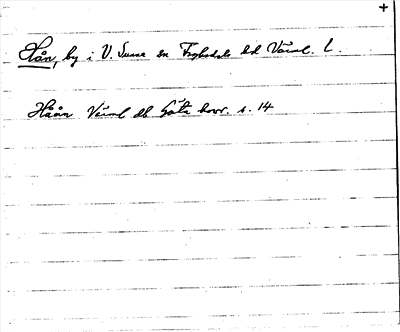 +
Hån, by i V. Sunne sn Fryksdals hd Värml. L.
Håån Värml db Göta hovr. s. 14